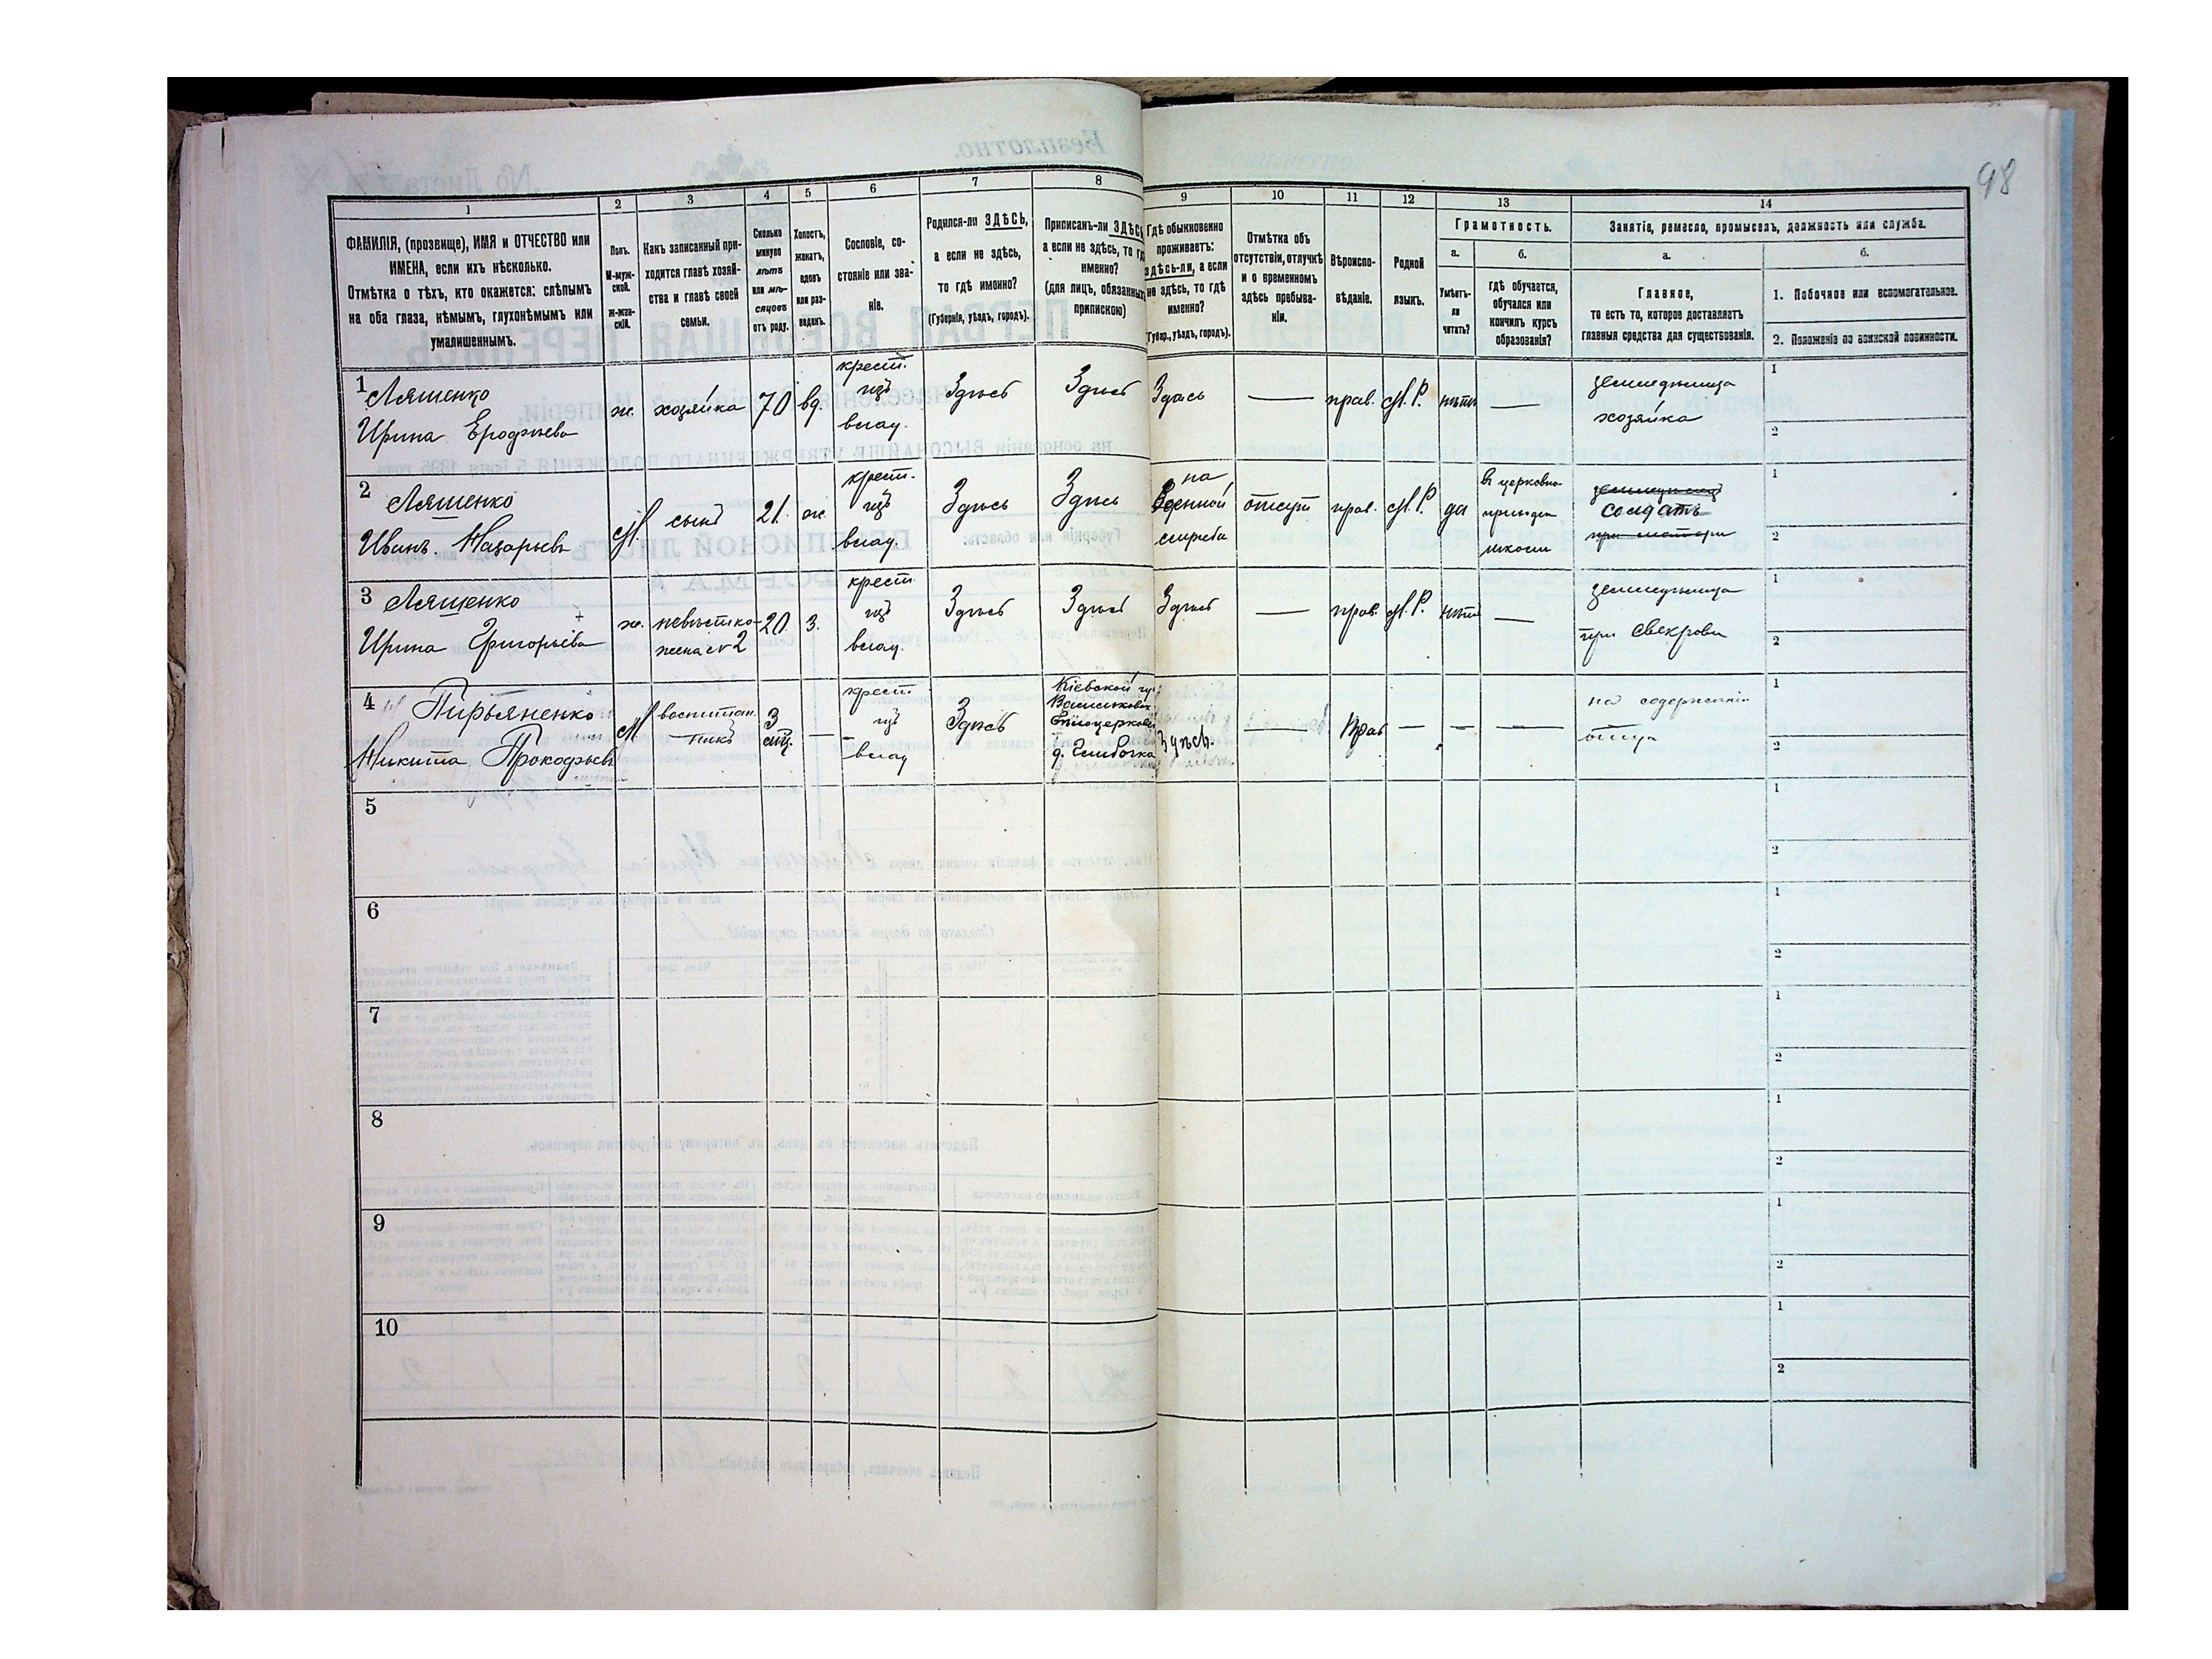 98
1 2 3 4 5 6 7 8 9 10 11 12 13 14
ФАМИЛІЯ, (прозвище), ИМЯ и ОТЧЕСТВО или
ИМЕНА, если ихъ нѣсколько.
Отмѣтка о тѣхъ, кто окажется: слѣпымъ
на оба глаза, нѣмымъ, глухонѣмымъ или
умалишеннымъ.
Полъ.
М-муж-
ской.
ж-жен-
скій.
Какъ записанный при-
ходится главѣ хозяй-
ства и главѣ своей
семьи.
Сколько
минуло
лѣтъ
или мѣ-
сяцовъ
отъ роду.
Холостъ,
женатъ,
вдовъ
или раз-
веденъ.
Сословіе, со-
стояніе или зва-
ніе.
Родился-ли ЗДѢСЬ,
а если не здѣсь,
то гдѣ именно?
(Губернія, уѣздъ, городъ).
Приписанъ-ли ЗДѢСЬ
а если не здѣсь, то гдѣ
именно?
(для лицъ, обязанныхъ
припискою)
Гдѣ обыкновенно
проживаетъ:
здѣсь-ли, а если
не здѣсь, то гдѣ
именно?
Губер., уѣздъ, городъ).
Отмѣтка объ
отсутствіи, отлучкѣ
и о временномъ
здѣсь пребыва-
ніи.
Вѣроиспо-
вѣданіе.
Родной
языкъ.
Грамотность.
а.
Умѣетъ-
ли
читать?
б.
гдѣ обучается,
обучался или
кончилъ курсъ
образованія?
Занятіе, ремесло, промыселъ, должность или служба.
а.
Главное,
то есть то, которое доставляетъ
главныя средства для существованія.
б.
1. Побочное или вспомогательное.
2. Положеніе по воинской повинности.
1 Ляшенко
Ирина Ерофѣева
ж.
хозяйка
70
вд.
крест.
изъ
влад.
Здѣсь
Здѣсь
Здѣсь
—
прав.
М.Р.
нѣтъ
—
земледѣлица
хозяйка
1
2
2 Ляшенко
Иванъ. Назарьевъ
М.
сынъ
21.
ж.
крест.
изъ
влад.
Здѣсь
Здѣсь
на
Военной
службѣ
отсут
прав.
М.Р.
да
въ церковно-
приходск
школѣ
солдатъ
при матери
1
2
3 Лященко
Ирина Григорьева
ж.
невѣстка-
жена № 2
20.
З.
крест
изъ
влад.
Здѣсь
Здѣсь
Здѣсь
—
прав.
М.Р.
нѣтъ
—
земледѣлица
при свекрови
1
2
4 Пирьяненко
Никита Прокофьевъ
М
воспитан
никъ
3
мѣц.
—
крест
изъ
влад
Здѣсь
Кіевской гу
Васильковск
д.
Здѣсь.
—
Прав
—
—
—
на содержаніи
отца
1
2
5
1
2
6
1
2
7
1
2
8
1
2
9
1
2
10
1
2